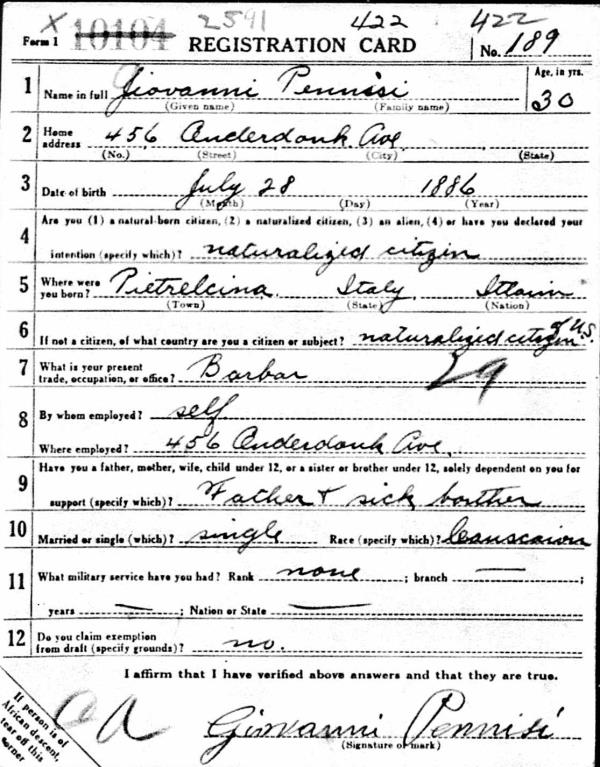 X 2591 422 422
Form 1 10104 REGISTRATION CARD No. 189
1 Name in full Giovanni Pennisi Age, in yrs. 30
(Given name) (Family name)
2 Home address 456 Onderdonk Ave.
(No.) (Street) (City) (State)
3 Date of birth July 28 1886
(Month) (Day) (Year)
4 Are you (1) a natural-born citizen, (2) a naturalized citizen, (3) an alien, (4) or have you declared your
intention (specify which)? naturalized citizen
5 Where were you born? Pietrelcina Italy
(Town) (State) (Nation)
6 If not a citizen, of what country are you a citizen or subject? naturalized citizen of U.S.
7 What is your present trade, occupation, or office? Barbar 29
8 By whom employed? self
Where employed? 456 Onderdonk Ave.
9 Have you a father, mother, wife, child under 12, or a sister or brother under 12, solely dependent on you for
support (specify which)? Father & sick borther
10 Married or single (which)? single Race (specify which)?
11 What military service have you had? Rank none ; branch — ;
years — ; Nation or State —
12 Do you claim exemption from draft (specify grounds)? no.
I affirm that I have verified above answers and that they are true.
If person is of
African descent,
tear off this
corner
Giovanni Pennisi
(Signature or mark)